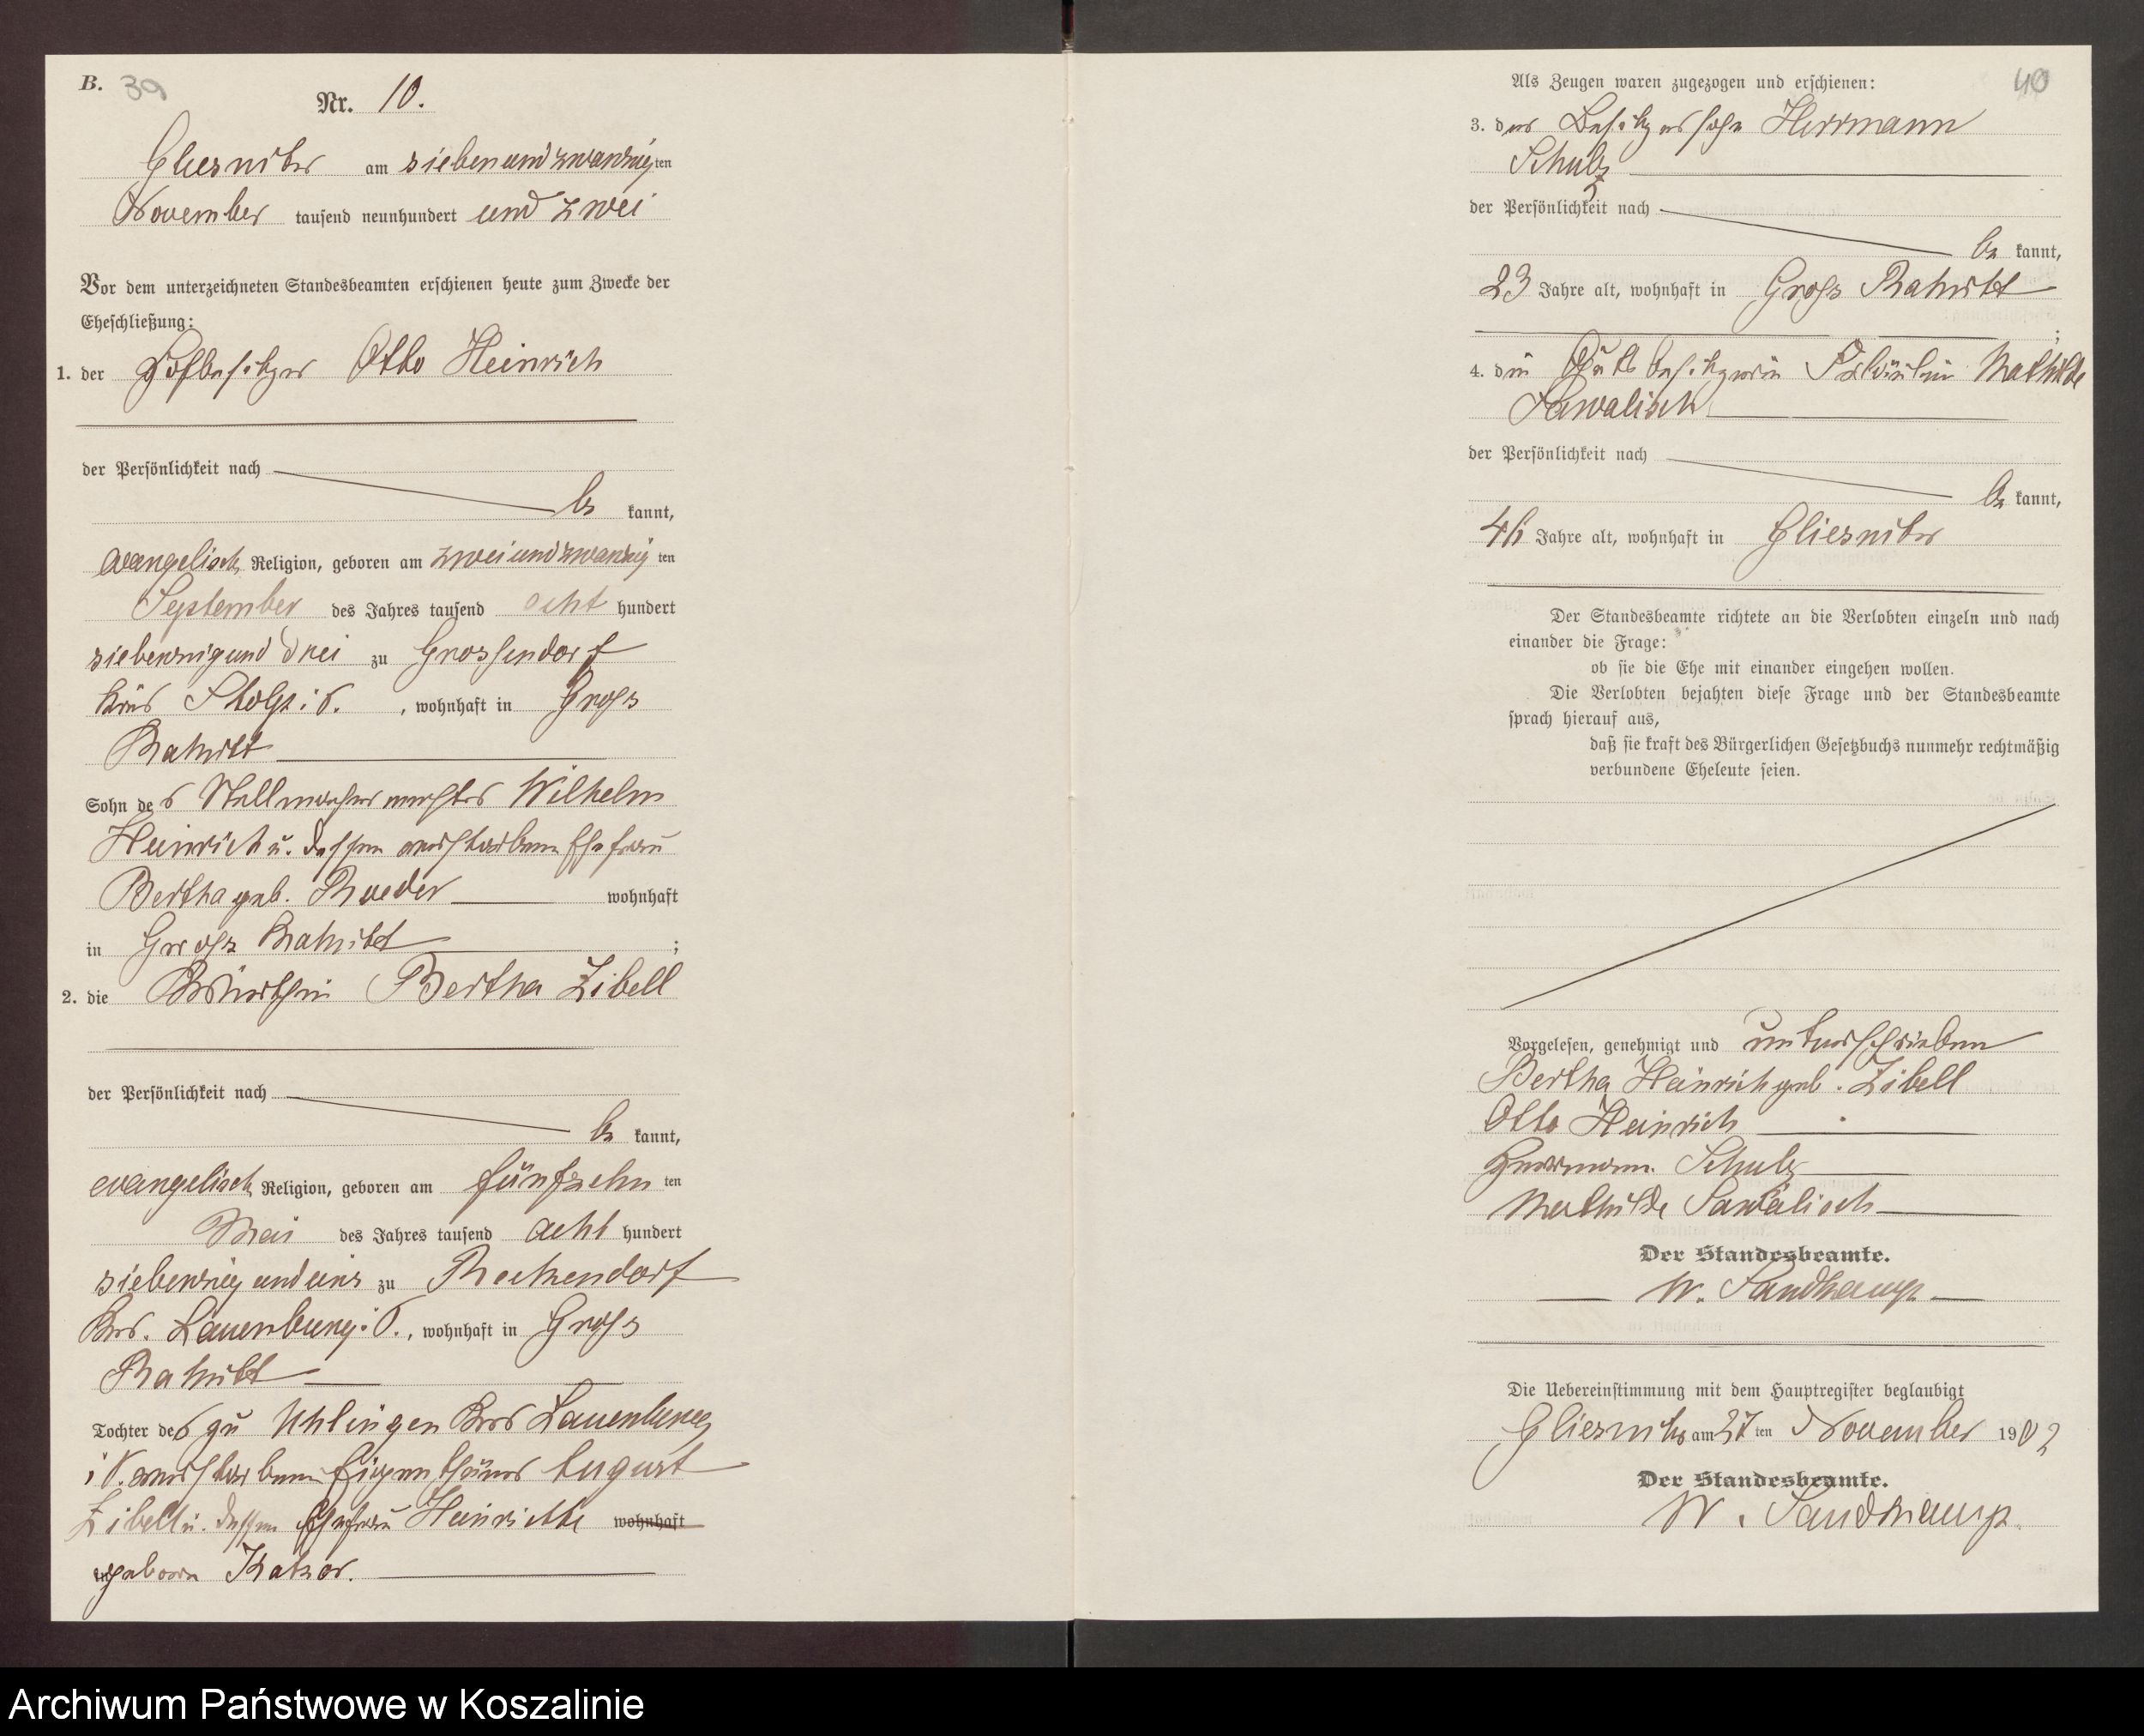 B. 39
Nr. 10.
Gliesnitz am siebenundzwanzigten
November tausend neunhundert und zwei
Vor dem unterzeichneten Standesbeamten erschienen heute zum Zwecke der
Eheschließung:
1. der Hofbesitzer Otto Heinrich
der Persönlichkeit nach
be kannt,
evangelisch Religion, geboren am zweiundzwanzig ten
September des Jahres tausend acht hundert
siebenzigund drei zu Grossendorf
Kreis Stolp i. P. , wohnhaft in Gross
Rakitt
Sohn des Stellmachermeisters Wilhelm
Heinrich u. dessen verstorbenen Ehefrau
Bertha geb. Roeder wohnhaft
in Gross Rakitt ;
2. die Wirthin Bertha Zibell
der Persönlichkeit nach
be kannt,
evangelisch Religion, geboren am fünfzehn ten
Mai des Jahres tausend acht hundert
siebenzig und eins zu Reckendorf
Krs. Lauenburg i. P. , wohnhaft in Gross
Rakitt
Tochter des zu Uhlingen Kreis Lauenburg
i P. verstorbenen Eigenthümer August
Zibell u. dessen Ehefrau Heinriette wohnhaft
in geboren Katzor.
40
Als Zeugen waren zugezogen und erschienen:
3. der Besitzersohn Herrmann
Schulz
der Persönlichkeit nach
be kannt,
23 Jahre alt, wohnhaft in Gross Rakitt
;
4. die Gutsbesitzerin Fräulein Mathilde
Sawalisch
der Persönlichkeit nach
be kannt,
46 Jahre alt, wohnhaft in Gliesnitz
Der Standesbeamte richtete an die Verlobten einzeln und nach
einander die Frage:
ob sie die Ehe mit einander eingehen wollen.
Die Verlobten bejahten diese Frage und der Standesbeamte
sprach hierauf aus,
daß sie kraft des Bürgerlichen Gesetzbuchs nunmehr rechtmäßig
verbundene Eheleute seien.
Vorgelesen, genehmigt und unterschrieben
Bertha Heinrich geb. Zibell
Otto Heinrich
Herrmann Schulz
Mathilde Sawalisch
Der Standesbeamte.
W. Sandkamp
Die Uebereinstimmung mit dem Hauptregister beglaubigt
Gliesnitz am 27 ten November 1902
Der Standesbeamte.
W. Sandkamp.
Archiwum Państwowe w Koszalinie